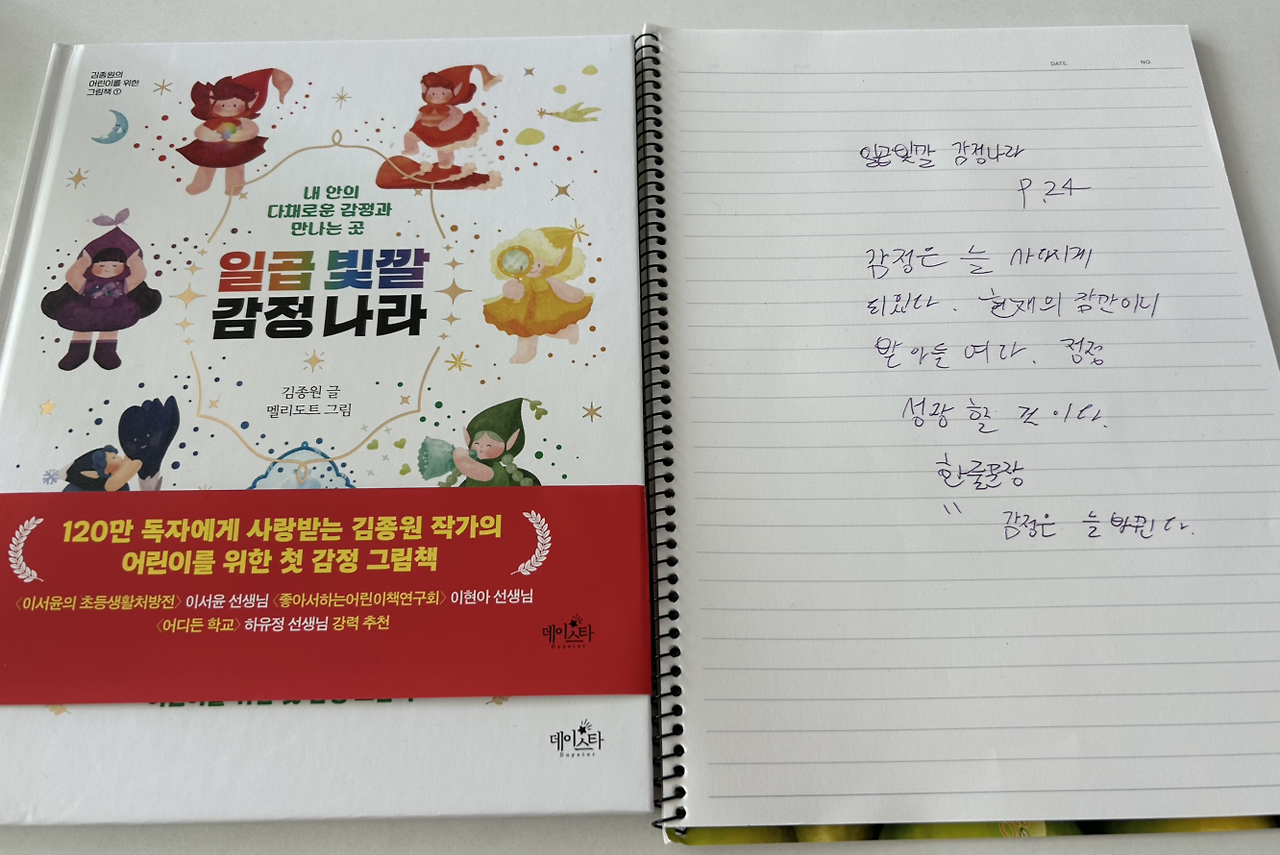 김종원의
어린이를 위한
그림책 ①
내 안의
다채로운 감정과
만나는 곳
일곱 빛깔
감정 나라
김종원 글
멜리도트 그림
120만 독자에게 사랑받는 김종원 작가의
어린이를 위한 첫 감정 그림책
〈이서윤의 초등생활처방전〉 이서윤 선생님 〈좋아서하는어린이책연구회〉 이현아 선생님
〈어디든 학교〉 하유정 선생님 강력 추천
데이스타
Daystar
데이스타
Daystar
DATE. NO.
일곱빛깔 감정나라
P.24
감정은 늘 사라지게
되있다. 현재의 감정이니
받아들여라. 점점
성장할 것이다.
한글문장
" 감정은 늘 바뀐다.